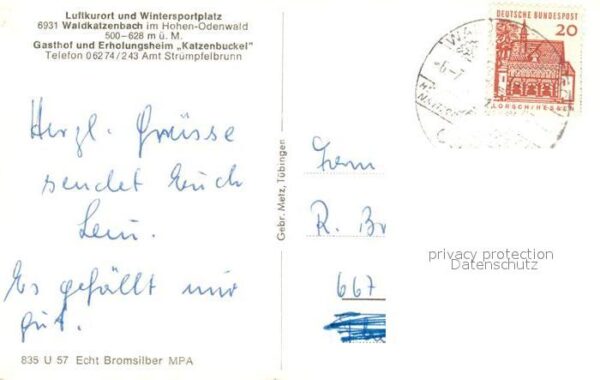 Luftkurort und Wintersportplatz
6931 Waldkatzenbach im Hohen-Odenwald
500–628 m ü. M.
Gasthof und Erholungsheim „Katzenbuckel"
Telefon 06274/243 Amt Strümpfelbrunn
Herzl. Grüsse
sendet Euch
Es gefällt mir
gut.
835 U 57 Echt Bromsilber MPA
Gebr. Metz, Tübingen
DEUTSCHE BUNDESPOST
20
LORSCH/HESSEN
WA
R. Br
667
privacy protection
Datenschutz